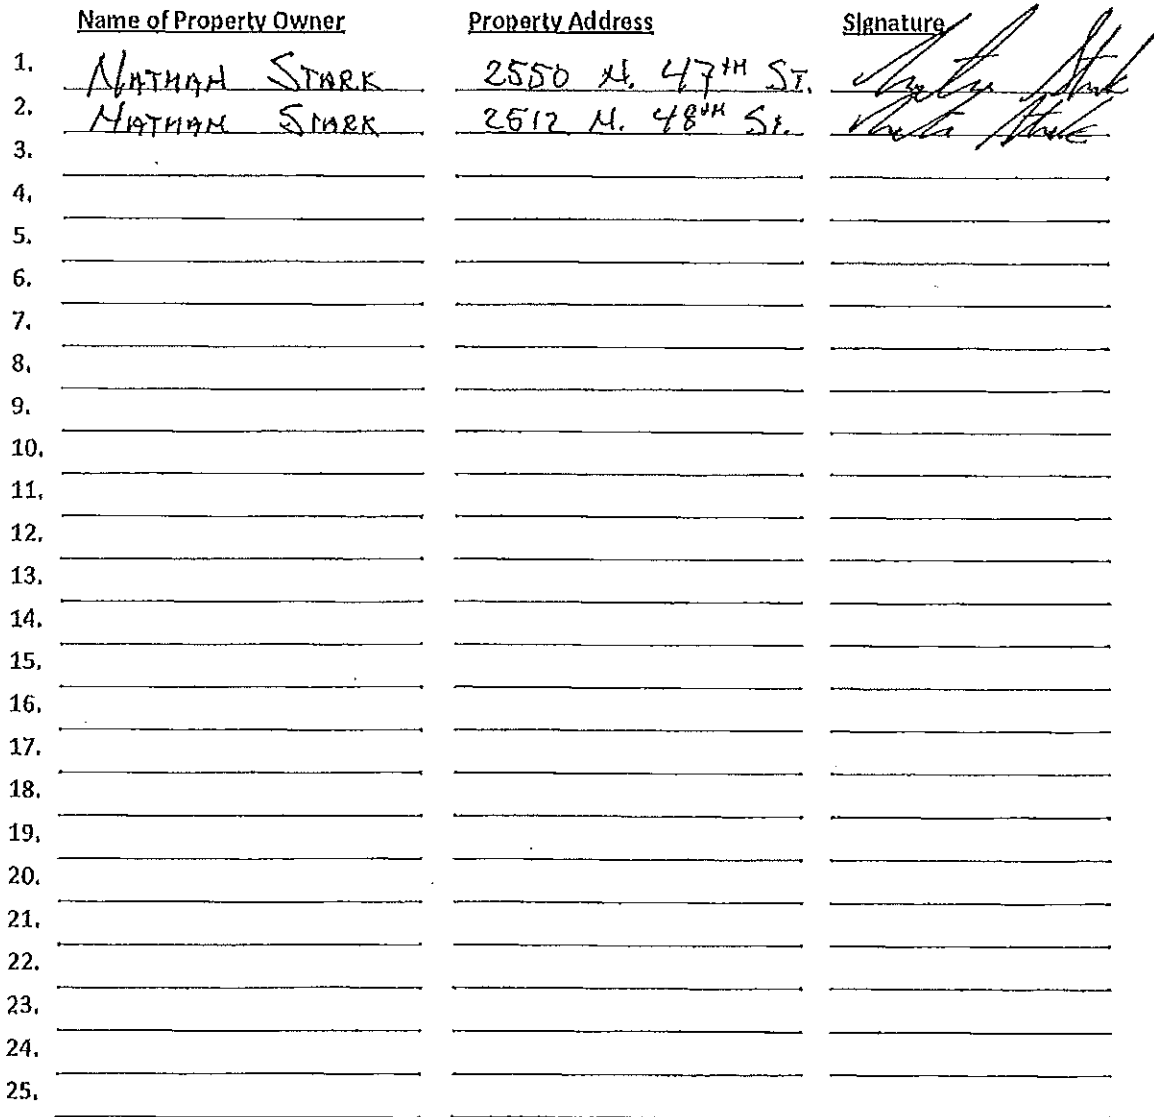 Name of Property Owner Property Address Signature
1. NATHAN STARK 2550 N. 47TH ST. Nathan Stark
2. NATHAN STARK 2612 N. 48TH ST. Nathan Stark
3.
4.
5.
6.
7.
8.
9.
10.
11.
12.
13.
14.
15.
16.
17.
18.
19.
20.
21.
22.
23.
24.
25.